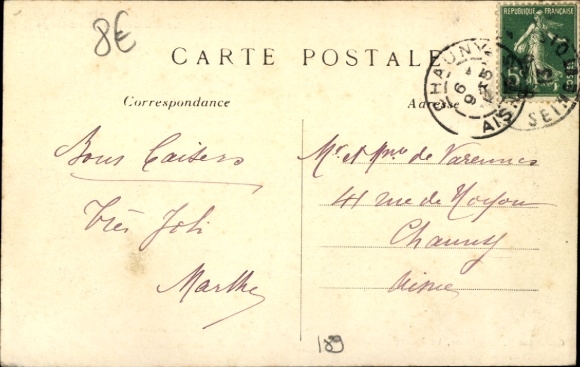 8€
CARTE POSTALE
RÉPUBLIQUE FRANÇAISE
CHAUNY
AISNE
Correspondance
Adresse
Bons Baisers
Très Joli
Marthe
Mr et Mme de Varennes
41 rue de Noyon
Chauny
Aisne
189